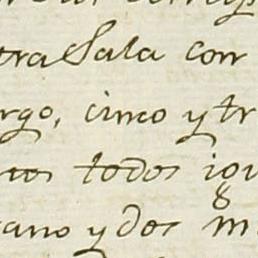 tra Sala con
rgo, cinco y tr
todos igu
ano y dos m